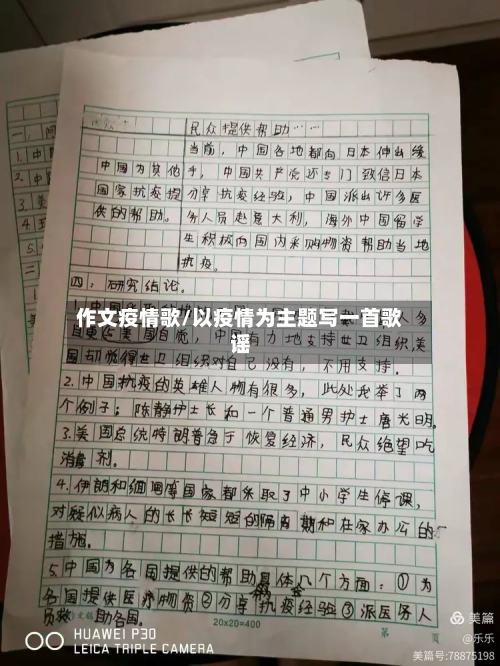 民众提供帮助……
当前，中国各地都向日本伸出缓
中国为其他 手，中国共产党还专门致信日本
国家抗疫提 分享抗疫经验，中国派出许多医
供的帮助。 务人员赴意大利，海外中国留学
生积极向国内采购物资帮助当地
抗疫。
四：研究结论。
作文疫情歌/以疫情为主题写一首歌
谣
力地支持世卫组织,美
国却觉得世卫组织对自己没有，不用支持。
2.中国抗疫的英雄人物有很多，此处我举了两
个例子；陈静护士长和一个普通男护士唐光明。
3.美国总统特朗普急于恢复经济，民众绝望吃
消毒剂。
4.伊朗和缅甸等国家都采取了中小学生停课，
对疑似病人的长长短短的隔离期和在家办公的
措施。
5.中国为各国提供的帮助具体几个方面：①为
各国提供医疗物资②分享抗疫经验③派医务人
员救助各国。
20x20=400
第 页
HUAWEI P30
LEICA TRIPLE CAMERA
美篇
@乐乐
美篇号:78875198